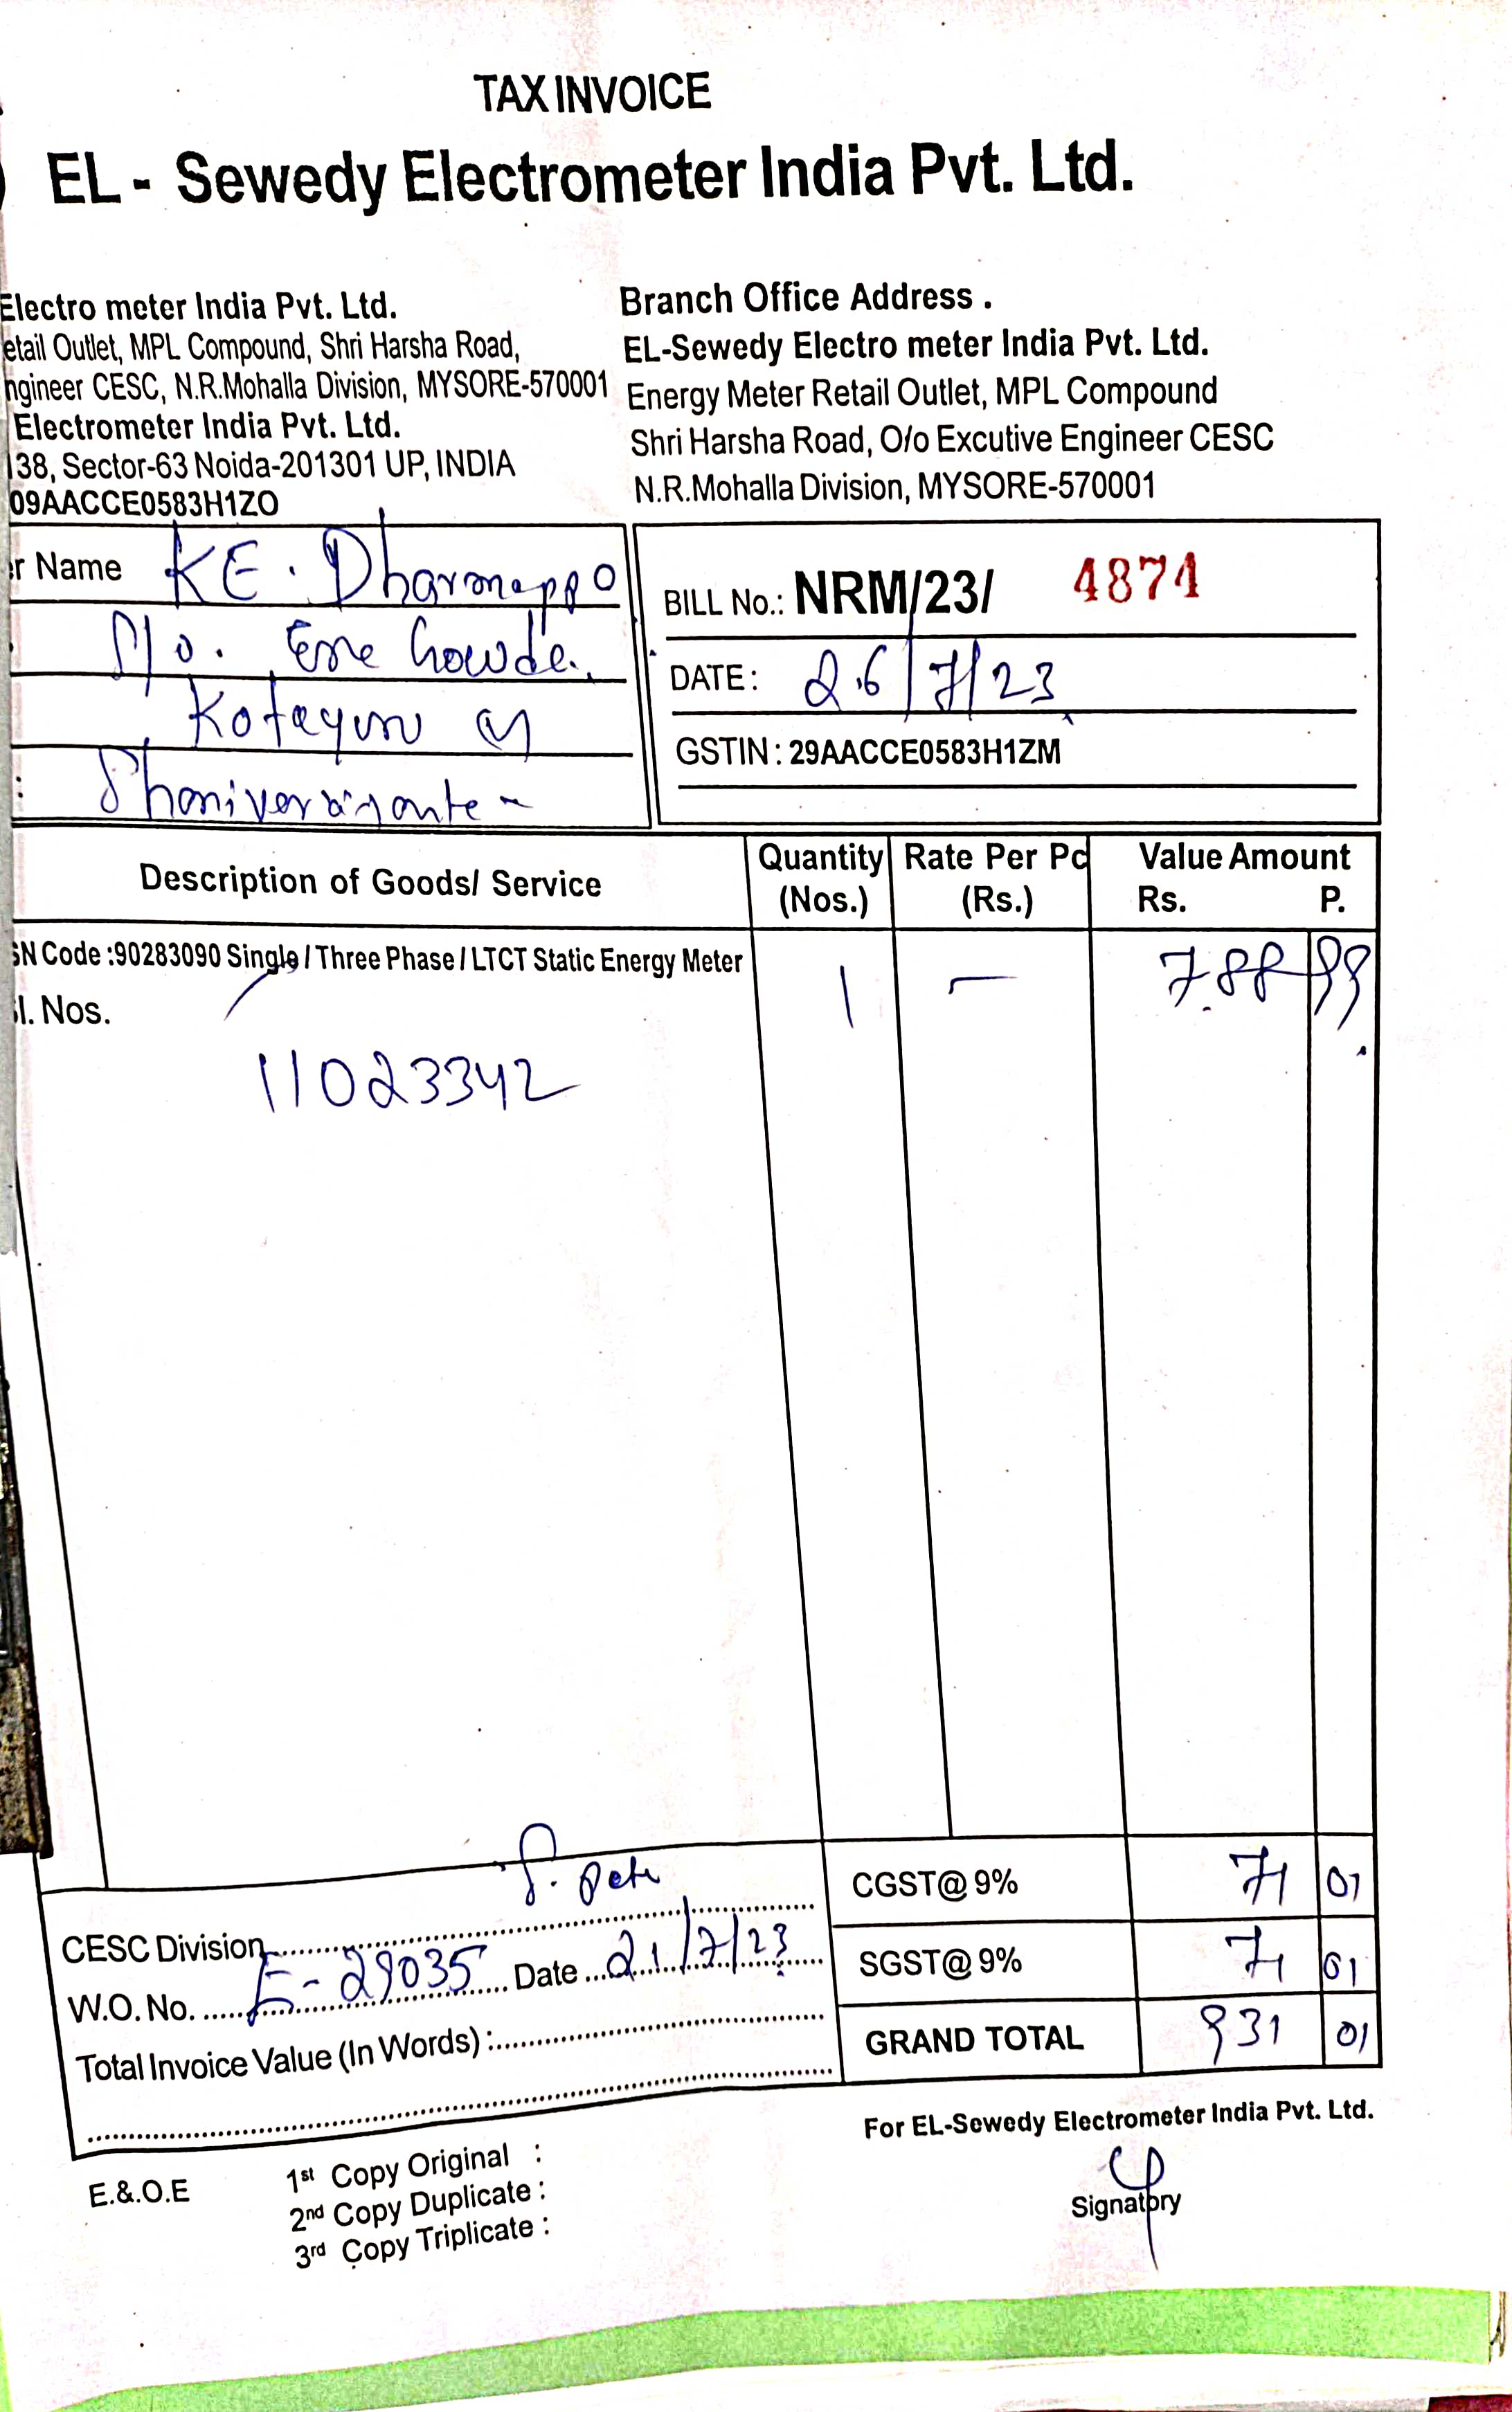 TAX INVOICE
EL - Sewedy Electrometer India Pvt. Ltd.
Electro meter India Pvt. Ltd.
etail Outlet, MPL Compound, Shri Harsha Road,
ngineer CESC, N.R.Mohalla Division, MYSORE-570001
Electrometer India Pvt. Ltd.
138, Sector-63 Noida-201301 UP, INDIA
09AACCE0583H1ZO
Branch Office Address .
EL-Sewedy Electro meter India Pvt. Ltd.
Energy Meter Retail Outlet, MPL Compound
Shri Harsha Road, O/o Excutive Engineer CESC
N.R.Mohalla Division, MYSORE-570001
r Name KE. Dharmappa
S/o. Gowda.
:
BILL No.: NRM/23/ 4874
DATE: 26/7/23
GSTIN : 29AACCE0583H1ZM
Description of Goods/ Service Quantity (Nos.) Rate Per Pc (Rs.) Value Amount Rs. P.
SN Code :90283090 Single / Three Phase / LTCT Static Energy Meter 1 - 788 99
l. Nos.
11023342
CESC Division
W.O. No. E-29035 Date 21/7/23
Total Invoice Value (In Words) :
CGST@ 9% 71 01
SGST@ 9% 71 01
GRAND TOTAL 931 01
For EL-Sewedy Electrometer India Pvt. Ltd.
Signatory
E.&.O.E
1st Copy Original :
2nd Copy Duplicate :
3rd Copy Triplicate :